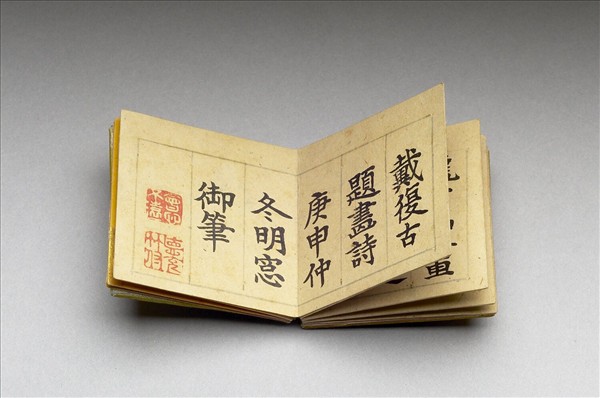 戴復古
題畫詩
庚申仲
冬明窓
御筆